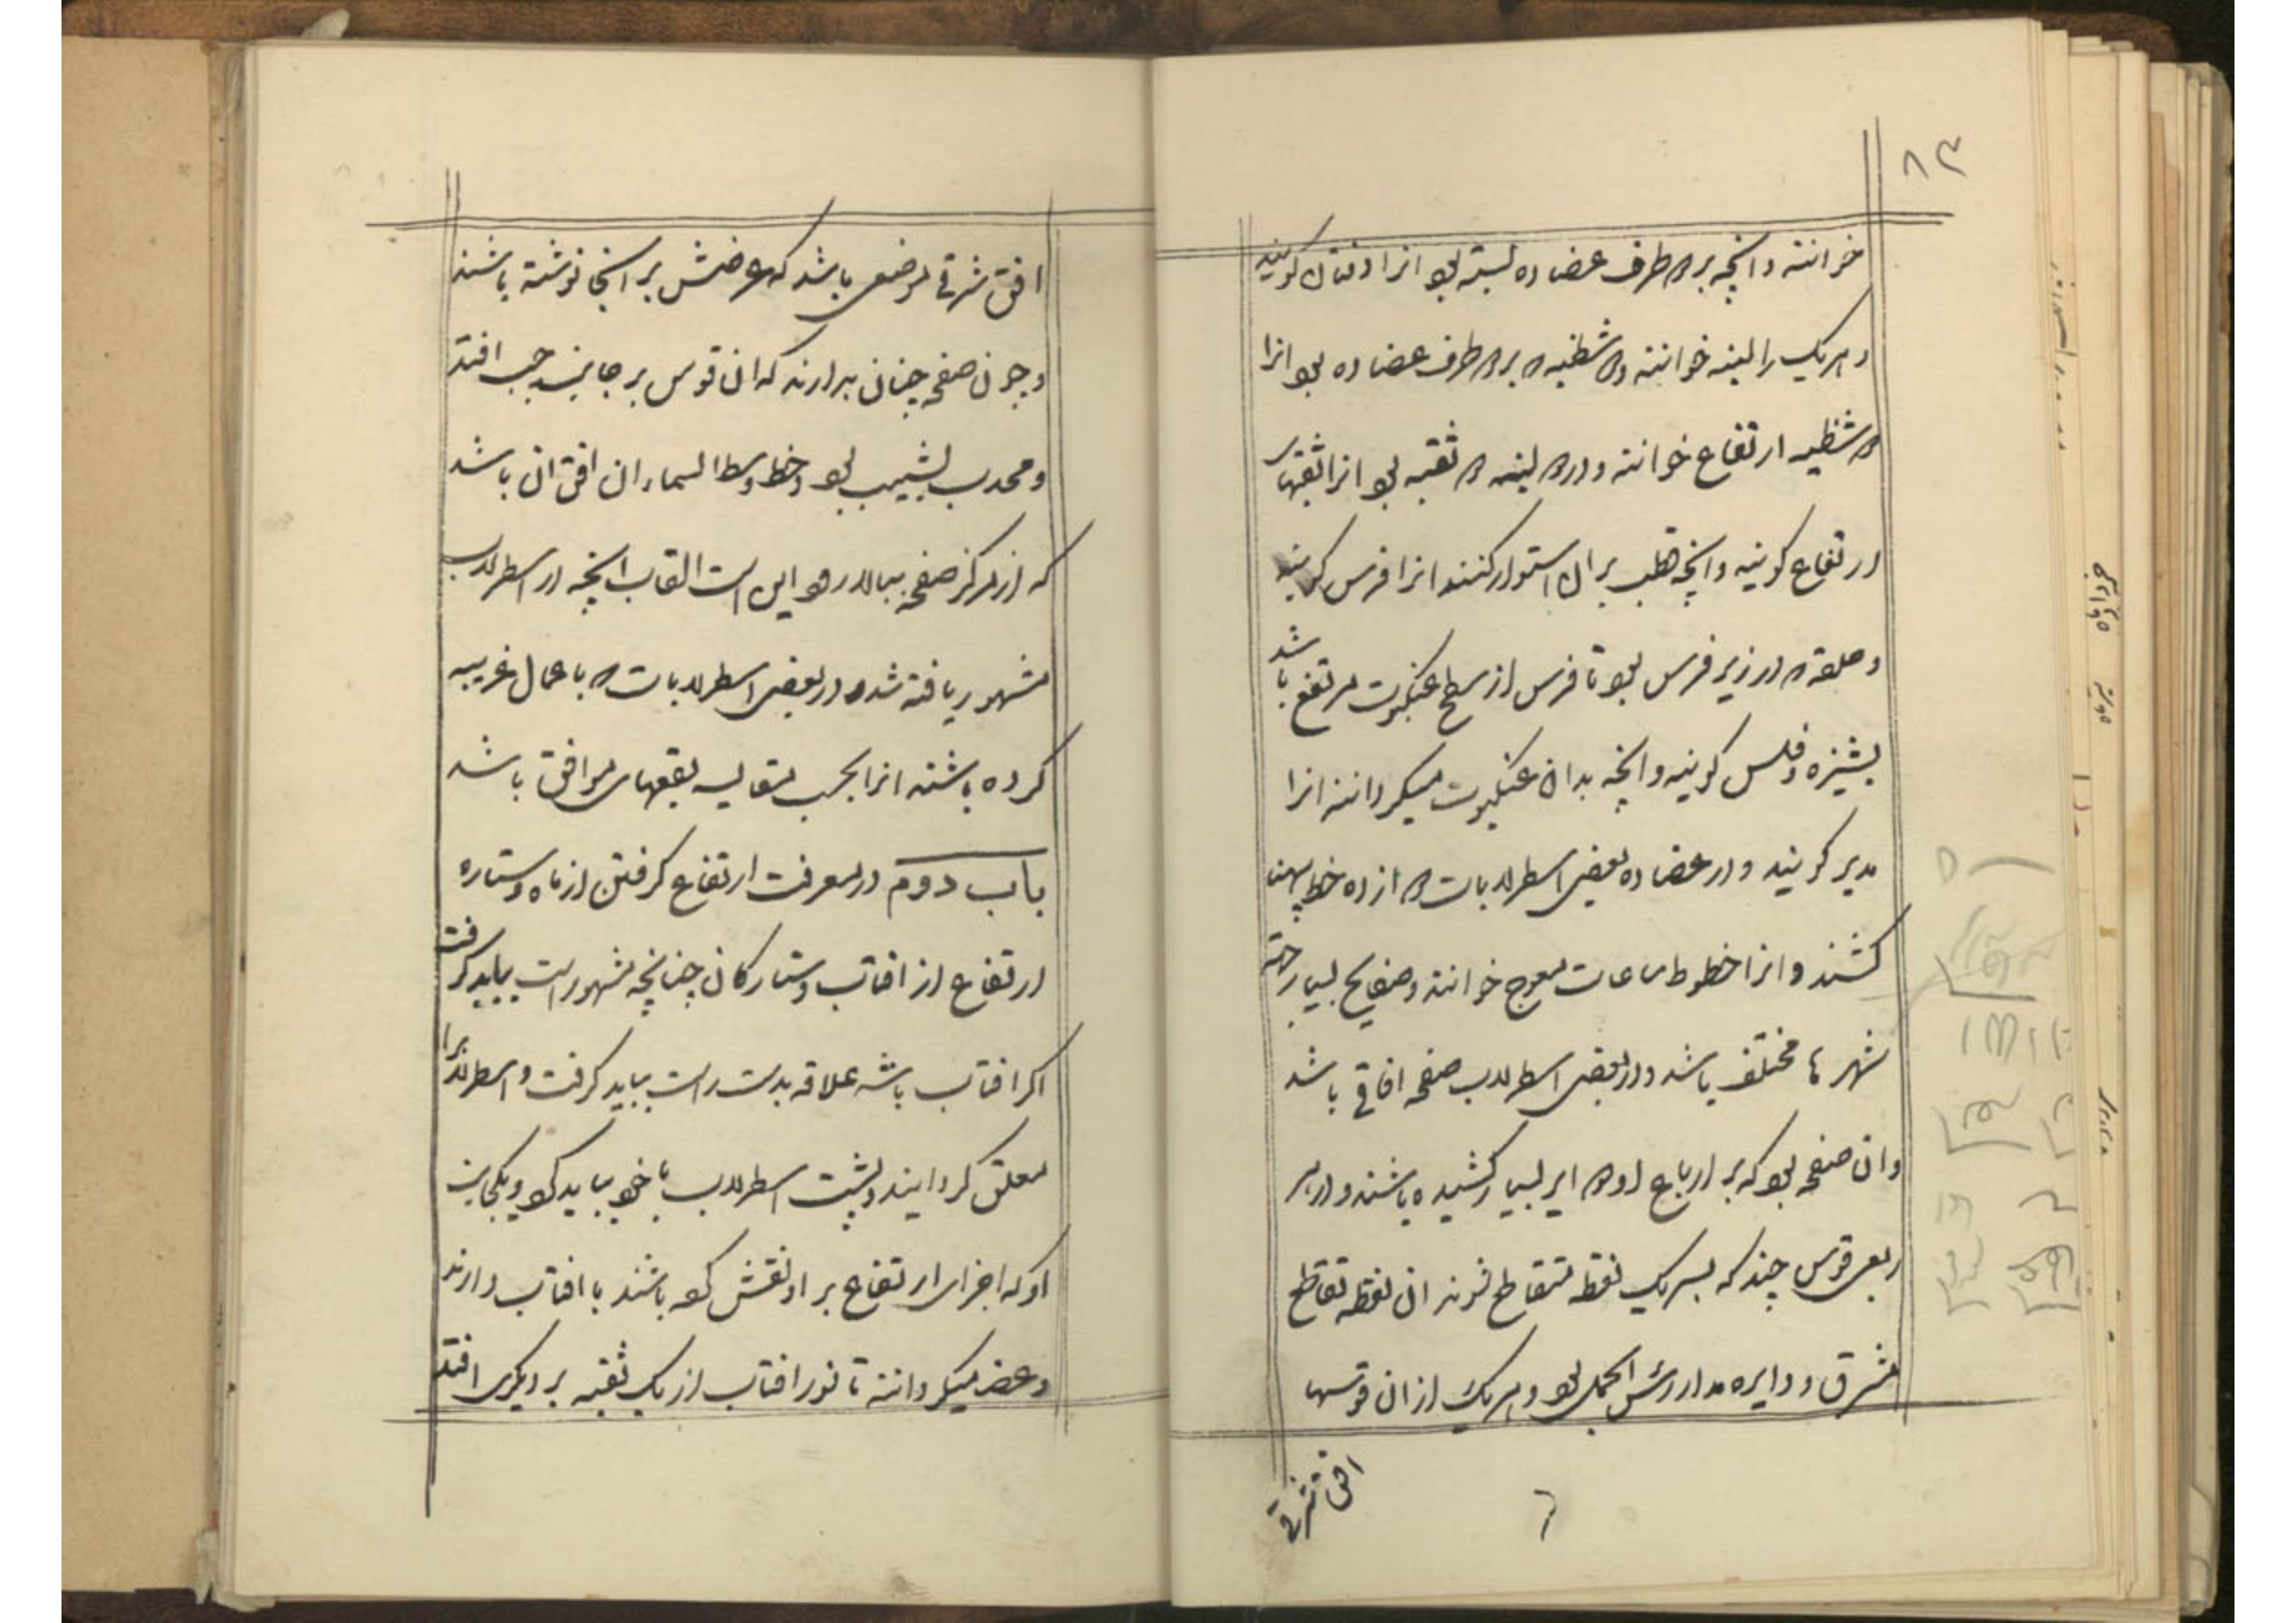 خوانند و انچه بر دو طرف عضاده بسته بود انرا دفتان کویند
و هر یک را لبنه خوانند و دو شظیه که بر دو طرف عضاده بود انرا
دو شظیه ارتفاع خوانند و در دو لبنه دو ثقبه بود انرا ثقبهای
ارتفاع کویند و انچه قطب بر ان استوار کنند انرا فرس کویند
و حلقه که در زیر فرس بود تا فرس از سطح عنکبوت مرتفع باشد
پشیزه و فلس کویند و انچه بدان عنکبوت میکردانند انرا
مدیر کویند و در عضاده بعضی اسطرلابات دوازده خط بهند
کشند و انرا خطوط ساعات معوج خوانند و صفایح بسیار جهته
شهرها مختلف باشد و در بعضی اسطرلاب صفحه افاقی باشد
و ان صفحه بود که بر ارباع او دوایر بسیار کشیده باشند و در هر
ربعی قوس چند که بسر یک نقطه متقاطع شوند ان نقطه تقاطع
مشرق و دایره مدار رئس الحمل بود و هر یک از ان قوسها
افق شرقی
افق شرقی موضعی باشد که عرضش بر انجا نوشته باشند
و چون صفحه چنان بدارند که ان قوس بر جانب چپ افتد
و محدب بشیب بود و خط وسط السماء ان افق ان باشد
که از مرکز صفحه ببالا رود این است القاب انچه در اسطرلاب
مشهور یافته شده و در بعضی اسطرلابات که با عمال غریبه
کرده باشند انرا بحسب مقایسه لقبهای موافق باشد
باب دوم در معرفت ارتفاع کرفتن از ماه و ستاره
ارتفاع از افتاب و ستارکان چنانچه مشهور است بباید کرفت
اکر افتاب باشد علاقه بدست راست بباید کرفت و اسطرلابرا
معلق کردانیدن و پشت اسطرلاب با خود بباید کرد و یکجانب
او که اجزای ارتفاع بر او نقش کرده باشند با افتاب دارند
و عضاده میکردانند تا نور افتاب از یک ثقبه بر دیکری افتد